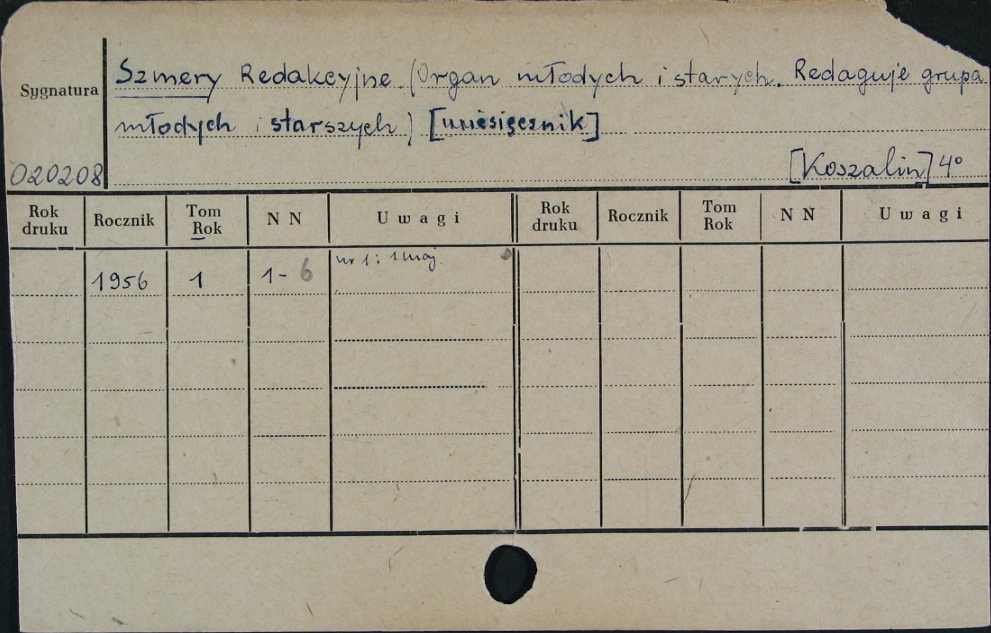 Sygnatura
Szmery Redakcyjne. (Organ młodych i starych. Redaguje grupa
młodych i starszych) [miesięcznik]
020208
[Koszalin] 4°
Rok druku Rocznik Tom Rok N N Uwagi Rok druku Rocznik Tom Rok N N Uwagi
1956 1 1-6 nr 1: 1 maj